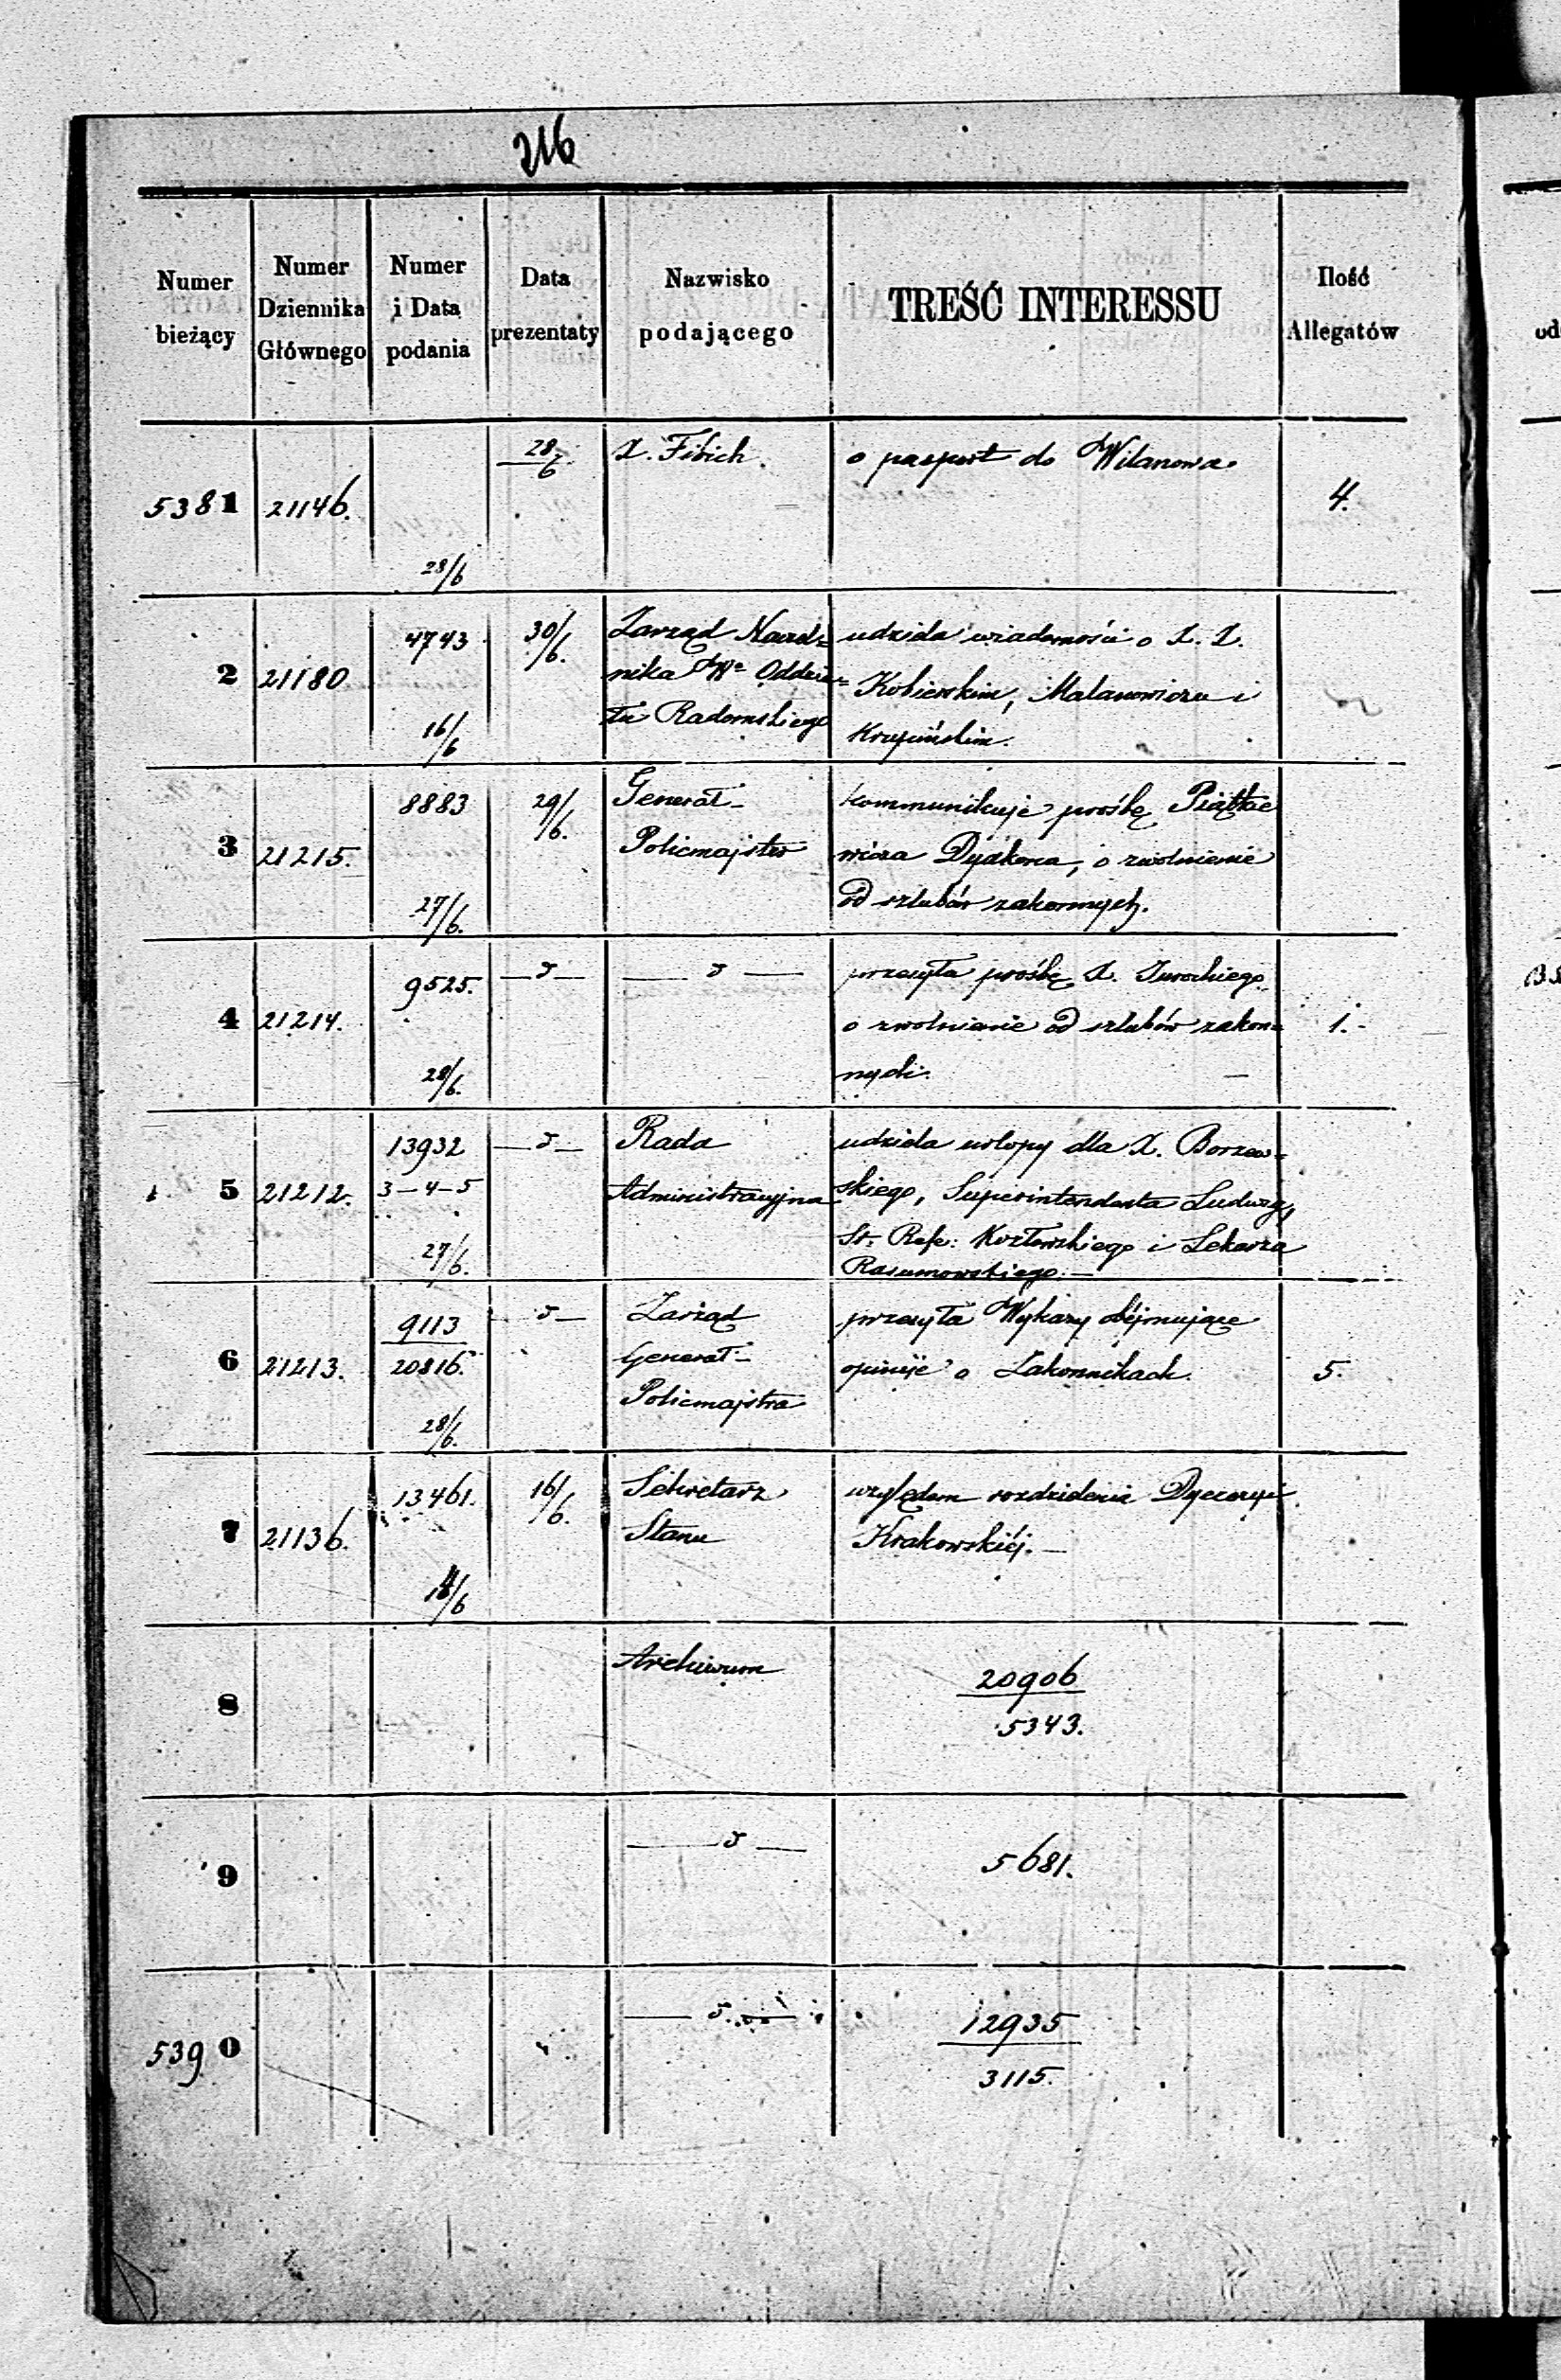 216
Numer bieżący
Numer Dziennika Głównego
Numer i Data podania
Data prezentaty
Nazwisko podającego
TREŚĆ INTERESSU
Ilość Allegatów
5381 21146. 28/6 28/6 X. Fibich. o pasport do Wilanowa 4.
2 21180 4743 16/6 30/6. Zarząd Naczel=
nika Wo Oddzia=
łu Radomskiego
udziela wiadomości o X. X.
Kobierskim, Malanowiczu i
Krupińskim.
3 21215. 8883 27/6. 29/6. Generał-
Policmajster
kommunikuje prośbę Piątke
wicza Dyakona, o zwolnienie
od szlubów zakonnych.
4 21214. 9525. 28/6. — d — — d —
przesyła prośbę X.
o zwolnienie od szlubów zakon=
nych. 1.-
5 21212. 13932
3-4-5
27/6. — d — Rada
Administracyjna
udziela urlopy dla X. Borzew=
skiego, Superintendenta Ludwig,
St. Refe: Kozłowskiego i Lekarza
Rasumowskiego.—
6 21213. 9113
20816.
28/6. — d — Zarząd
Generał-
Policmajstra
przesyła Wykazy obejmujące
opinije o Zakonnikach. 5.
7 21136. 13461. /6 16/6. Sekretarz
Stanu
względem rozdzielenia Dyecezyi
Krakowskiéj.—
8 Archiwum 20906
5343.
9 — d — 5681.
5390 — d. — 12935
3115.